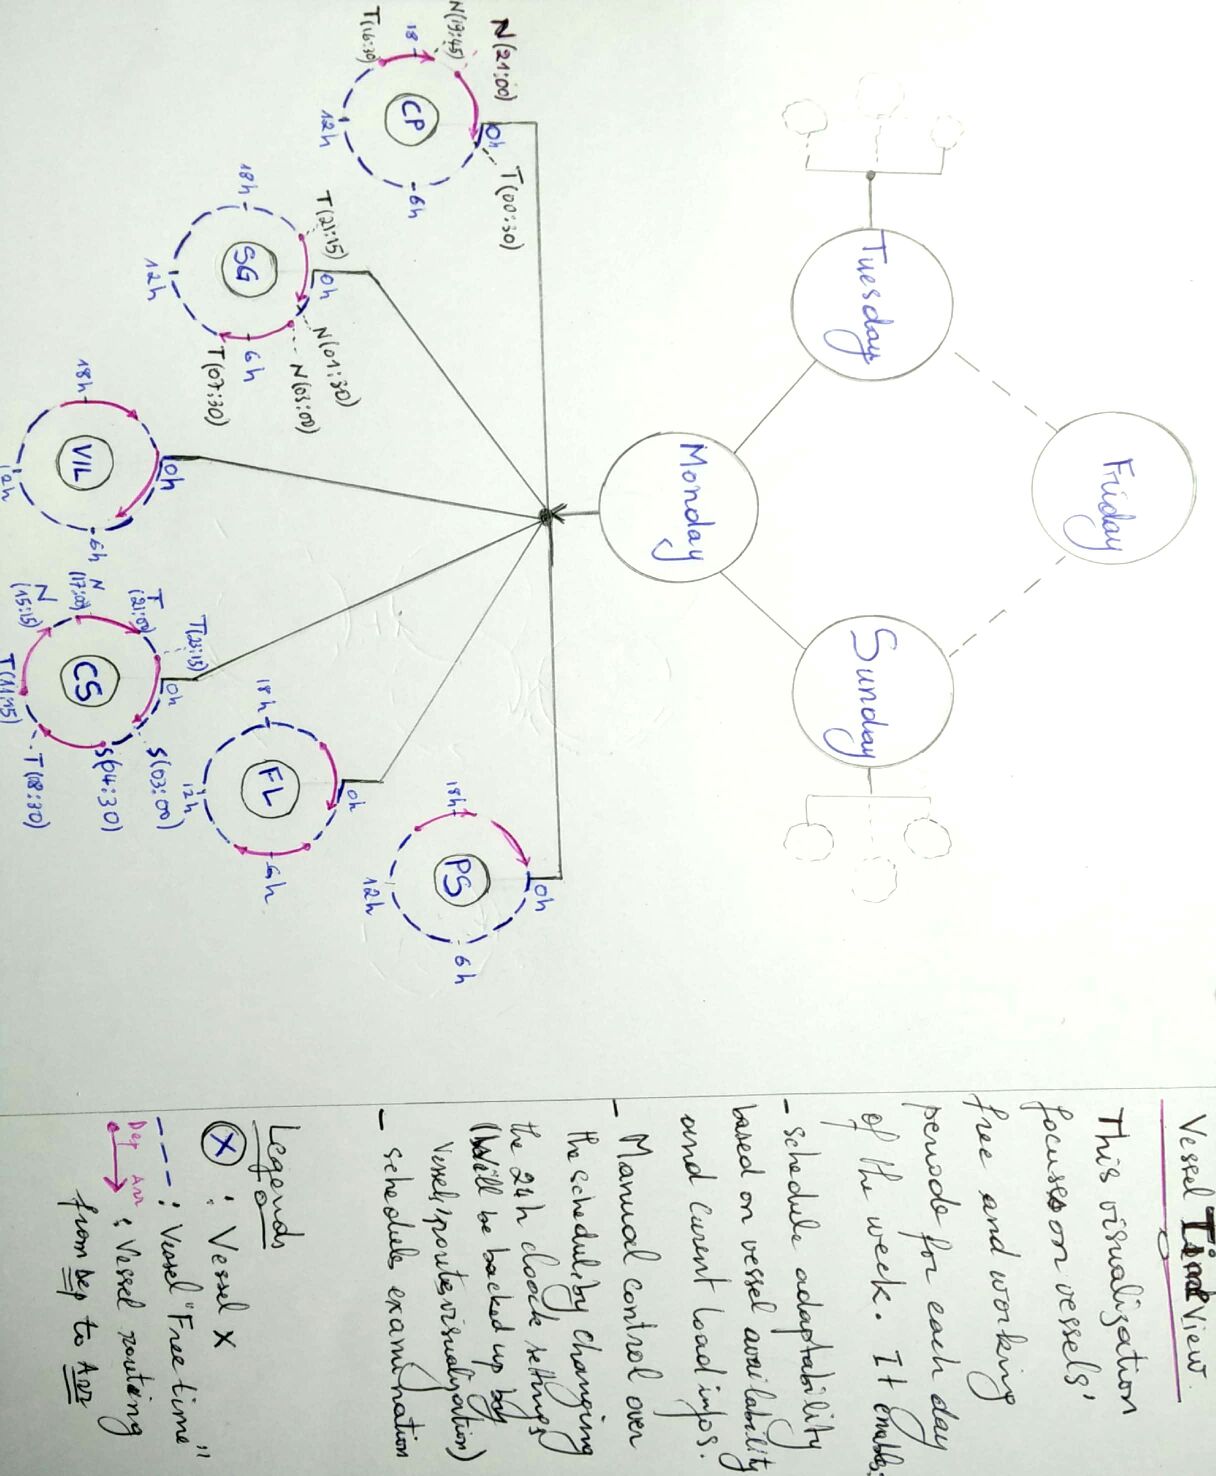 Friday
Tuesday
Sunday
Monday
N(21:00)
0h
T(00:30)
N(19:45)
18
CP
6h
T(16:30)
12h
T(21:15)
0h
N(01:30)
N(03:00)
18h
SG
6h
T(07:30)
12h
0h
18h
VIL
6h
12h
T(23:15)
0h
S(03:00)
T
(21:00)
S(04:30)
N
CS
N
(15:15)
T(08:30)
0h
18h
FL
6h
12h
0h
18h
PS
6h
12h
Vessel Time View
This visualization
focuses on vessels'
free and working
periods for each day
of the week. It enables:
- schedule adaptability
based on vessel availability
and curent load infos.
- Manual control over
the schedule by changing
the 24h cloock settings
(Will be backed up by
vessels' route visualization)
- schedules examination
Legends
X : Vessel X
: Vessel "Free time"
Dep Arr
: Vessel routing
from Dep to Arr